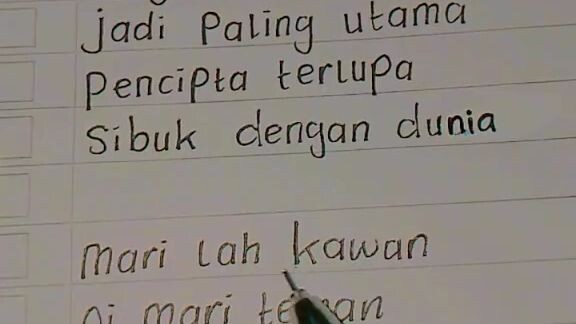 jadi Paling utama
Pencipta terlupa
Sibuk dengan dunia
mari lah kawan
mari